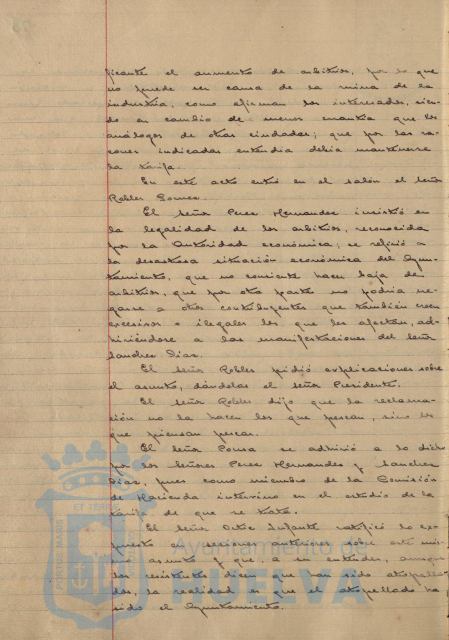 ficante el aumento de arbitrios, por lo que
no puede ser causa de la ruina de la
industria, como afirman los interesados, sien-
do en cambio de menos cuantia que los
análogos de otras ciudades; que por las ra-
zones indicadas entendia debia mantenerse
la tarifa.
En este acto entró en el salón el señor
Robles Gomez.
El señor Perez Hernandez insistió en
la legalidad de los arbitrios, reconocida
por la Autoridad económica; se refirió a
la desastrosa situación económica del Ayun-
tamiento, que no consiente hacer baja de
arbitrios, que por otra parte no podria ne-
garse a otros contribuyentes que tambien creen
excesivos o ilegales los que les afectan, ad-
hiriéndose a las manifestaciones del señor
Sanchez Diaz.
El señor Robles pidió explicaciones sobre
el asunto, dándolas el señor Presidente.
El señor Robles dijo que la reclama-
ción no la hacen los que pescan, sino los
que piensan pescar.
El señor Pousa se adhirió a lo dicho
por los señores Perez Hernandez y Sanchez
Diaz, pues como miembro de la Comisión
de Hacienda intervino en el estudio de la
tarifa de que se trata.
El señor Ortiz Infante ratificó lo ex-
puesto en sesiones anteriores sobre este mis-
mo asunto y que, a su entender, aunque
los resistentes dicen que han sido atropella-
dos, la realidad es que el atropellado ha
sido el Ayuntamiento.
Ayuntamiento de
HUELVA